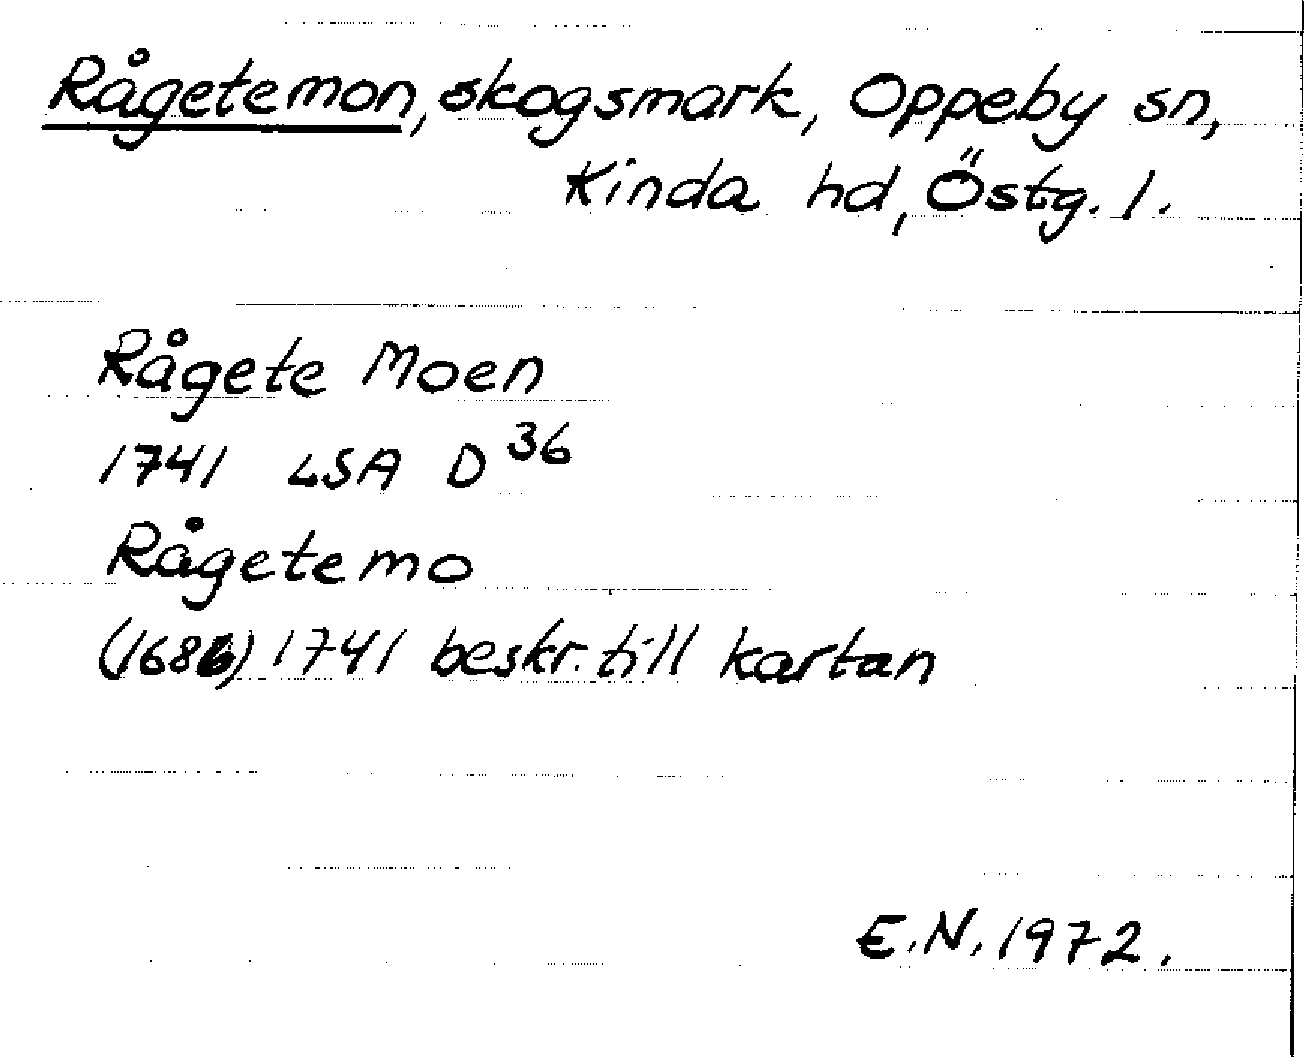 Rågetemon, skogsmark, Oppeby sn,
Kinda hd, Östg. l.
Rågete Moen
1741 LSA D 36
Rågetemo
(1686) 1741 beskr. till kartan
E.N. 1972.